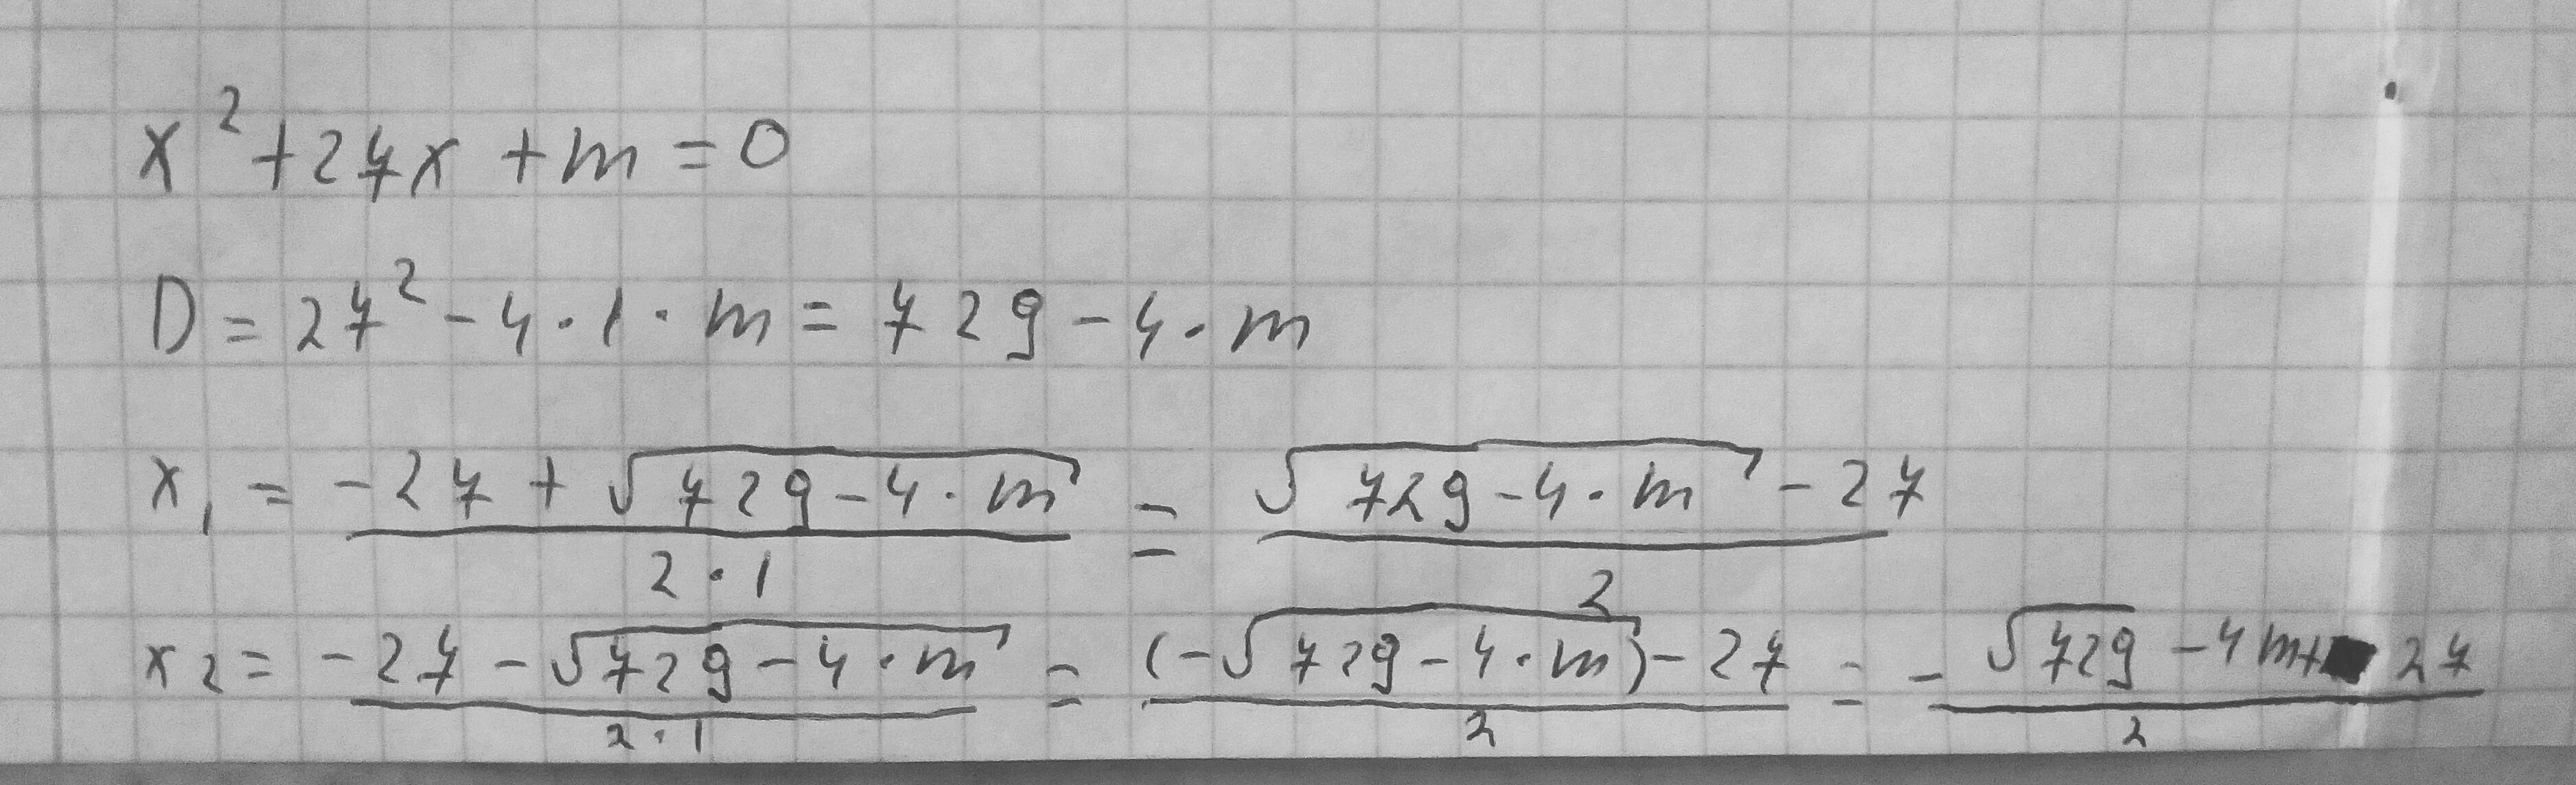 x² + 27x + m = 0
D = 27² - 4 · 1 · m = 729 - 4 · m
x₁ = (-27 + √(729 - 4 · m)) / (2 · 1) = (√(729 - 4 · m) - 27) / 2
x₂ = (-27 - √(729 - 4 · m)) / (2 · 1) = ((-√(729 - 4 · m)) - 27) / 2 = - (√729 - 4m + 27) / 2